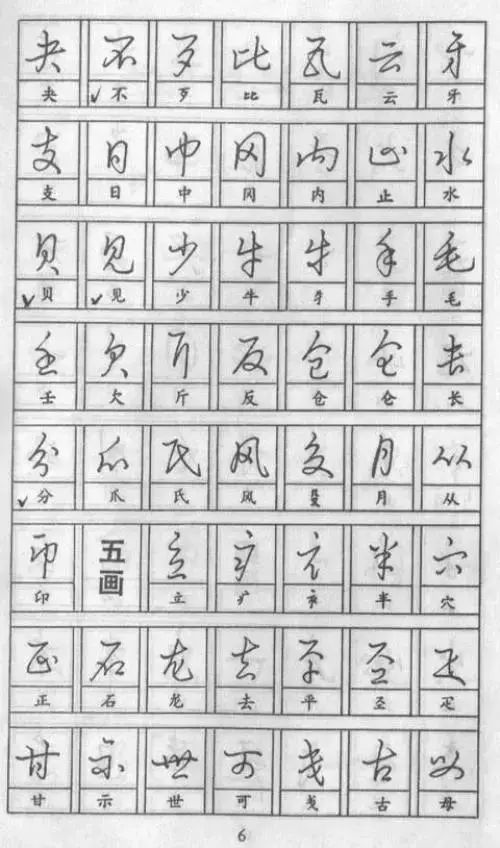 夬 不 歹 比 瓦 云 牙
夬 不 歹 比 瓦 云 牙
支 日 中 冈 内 止 水
支 日 中 冈 内 止 水
贝 见 少 牛 牜 手 毛
贝 见 少 牛 牜 手 毛
壬 欠 斤 反 仓 仑 长
壬 欠 斤 反 仓 仑 长
分 爪 氏 风 殳 月 从
分 爪 氏 风 殳 月 从
印 五画 立 疒 衤 半 穴
印 立 疒 衤 半 穴
正 石 龙 去 平 疋
正 石 龙 去 平 疋
甘 示 世 可 戋 古 母
甘 示 世 可 戋 古 母
6